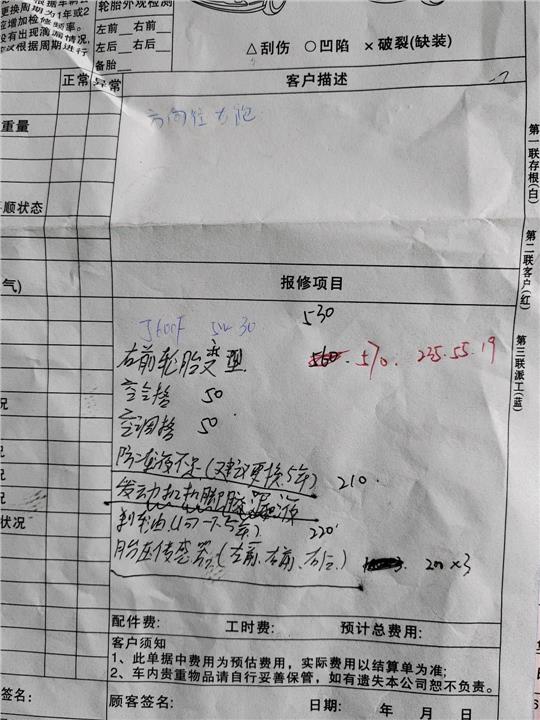 更换周期为1年或2
应增加检修频率。
没有出现滴漏情况,
议根据周期进行
轮胎外观检测
左前 右前
左后 右后
备胎
△刮伤 ○凹陷 ×破裂(缺装)
正常 异常
客户描述
方向往右跑
重量
顺状态
气)
报修项目
5W 30 530
右前轮胎变型 570. 235.55.19
空气格 50
空调格 50
防冻液不足(建议更换.5年) 210
发动机机脚胶漏液
刹车油(1.5年) 220
胎压传感器(左前、右前、右后) 200×3
况
况
况
状况
配件费: 工时费: 预计总费用:
客户须知
1、此单据中费用为预估费用,实际费用以结算单为准;
2、车内贵重物品请自行妥善保管,如有遗失本公司恕不负责。
签名: 顾客签名: 日期: 年 月
第一联存根(白)
第二联客户(红)
第三联派工(蓝)